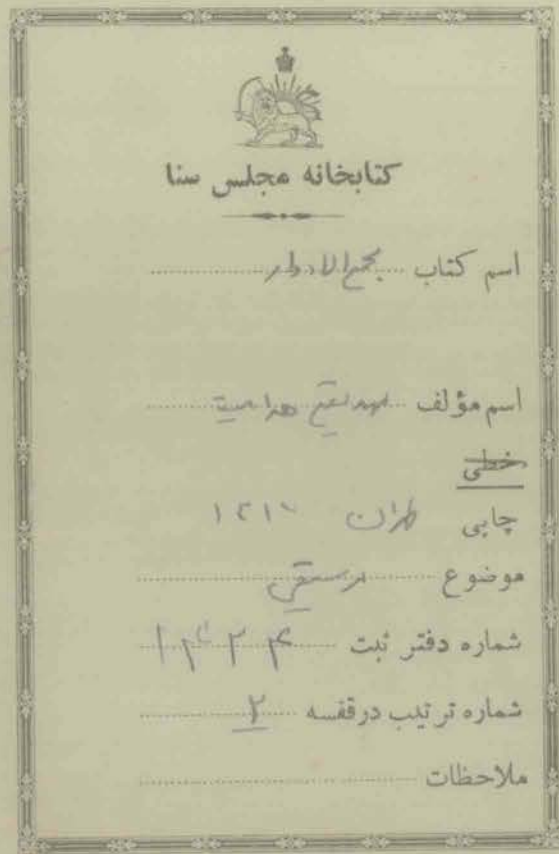 کتابخانه مجلس سنا
اسم کتاب مجمع الادوار
اسم مؤلف مهدیقلی هدایت
خطی
چاپی طهران
موضوع موسیقی
شماره دفتر ثبت
شماره ترتیب درقفسه ۲
ملاحظات